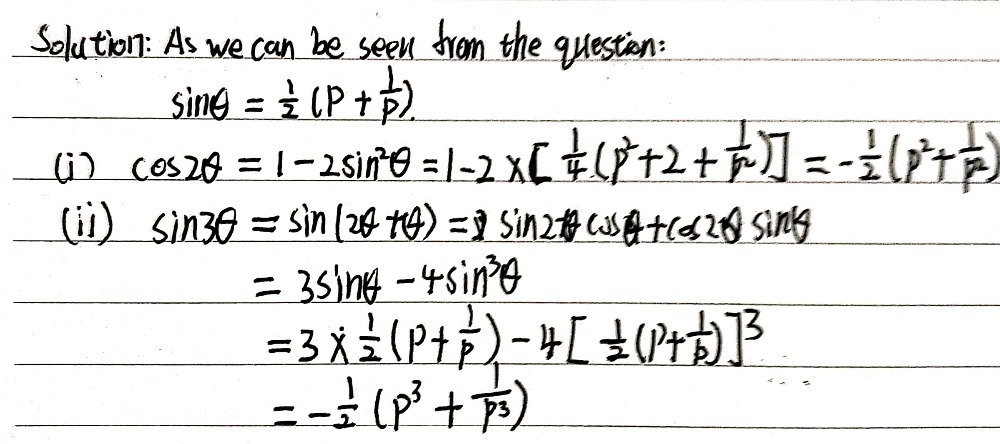 Solution: As we can be seen from the question:
sinθ = 1/2 (P + 1/P).
(i) cos2θ = 1 - 2sin²θ = 1 - 2 × [ 1/4 (p² + 2 + 1/p²)] = - 1/2 (p² + 1/p²)
(ii) sin3θ = sin (2θ + θ) = sin2θ cosθ + cos2θ sinθ
= 3sinθ - 4sin³θ
= 3 × 1/2 (P + 1/P) - 4 [ 1/2 (P + 1/P)]³
= - 1/2 (P³ + 1/P³)